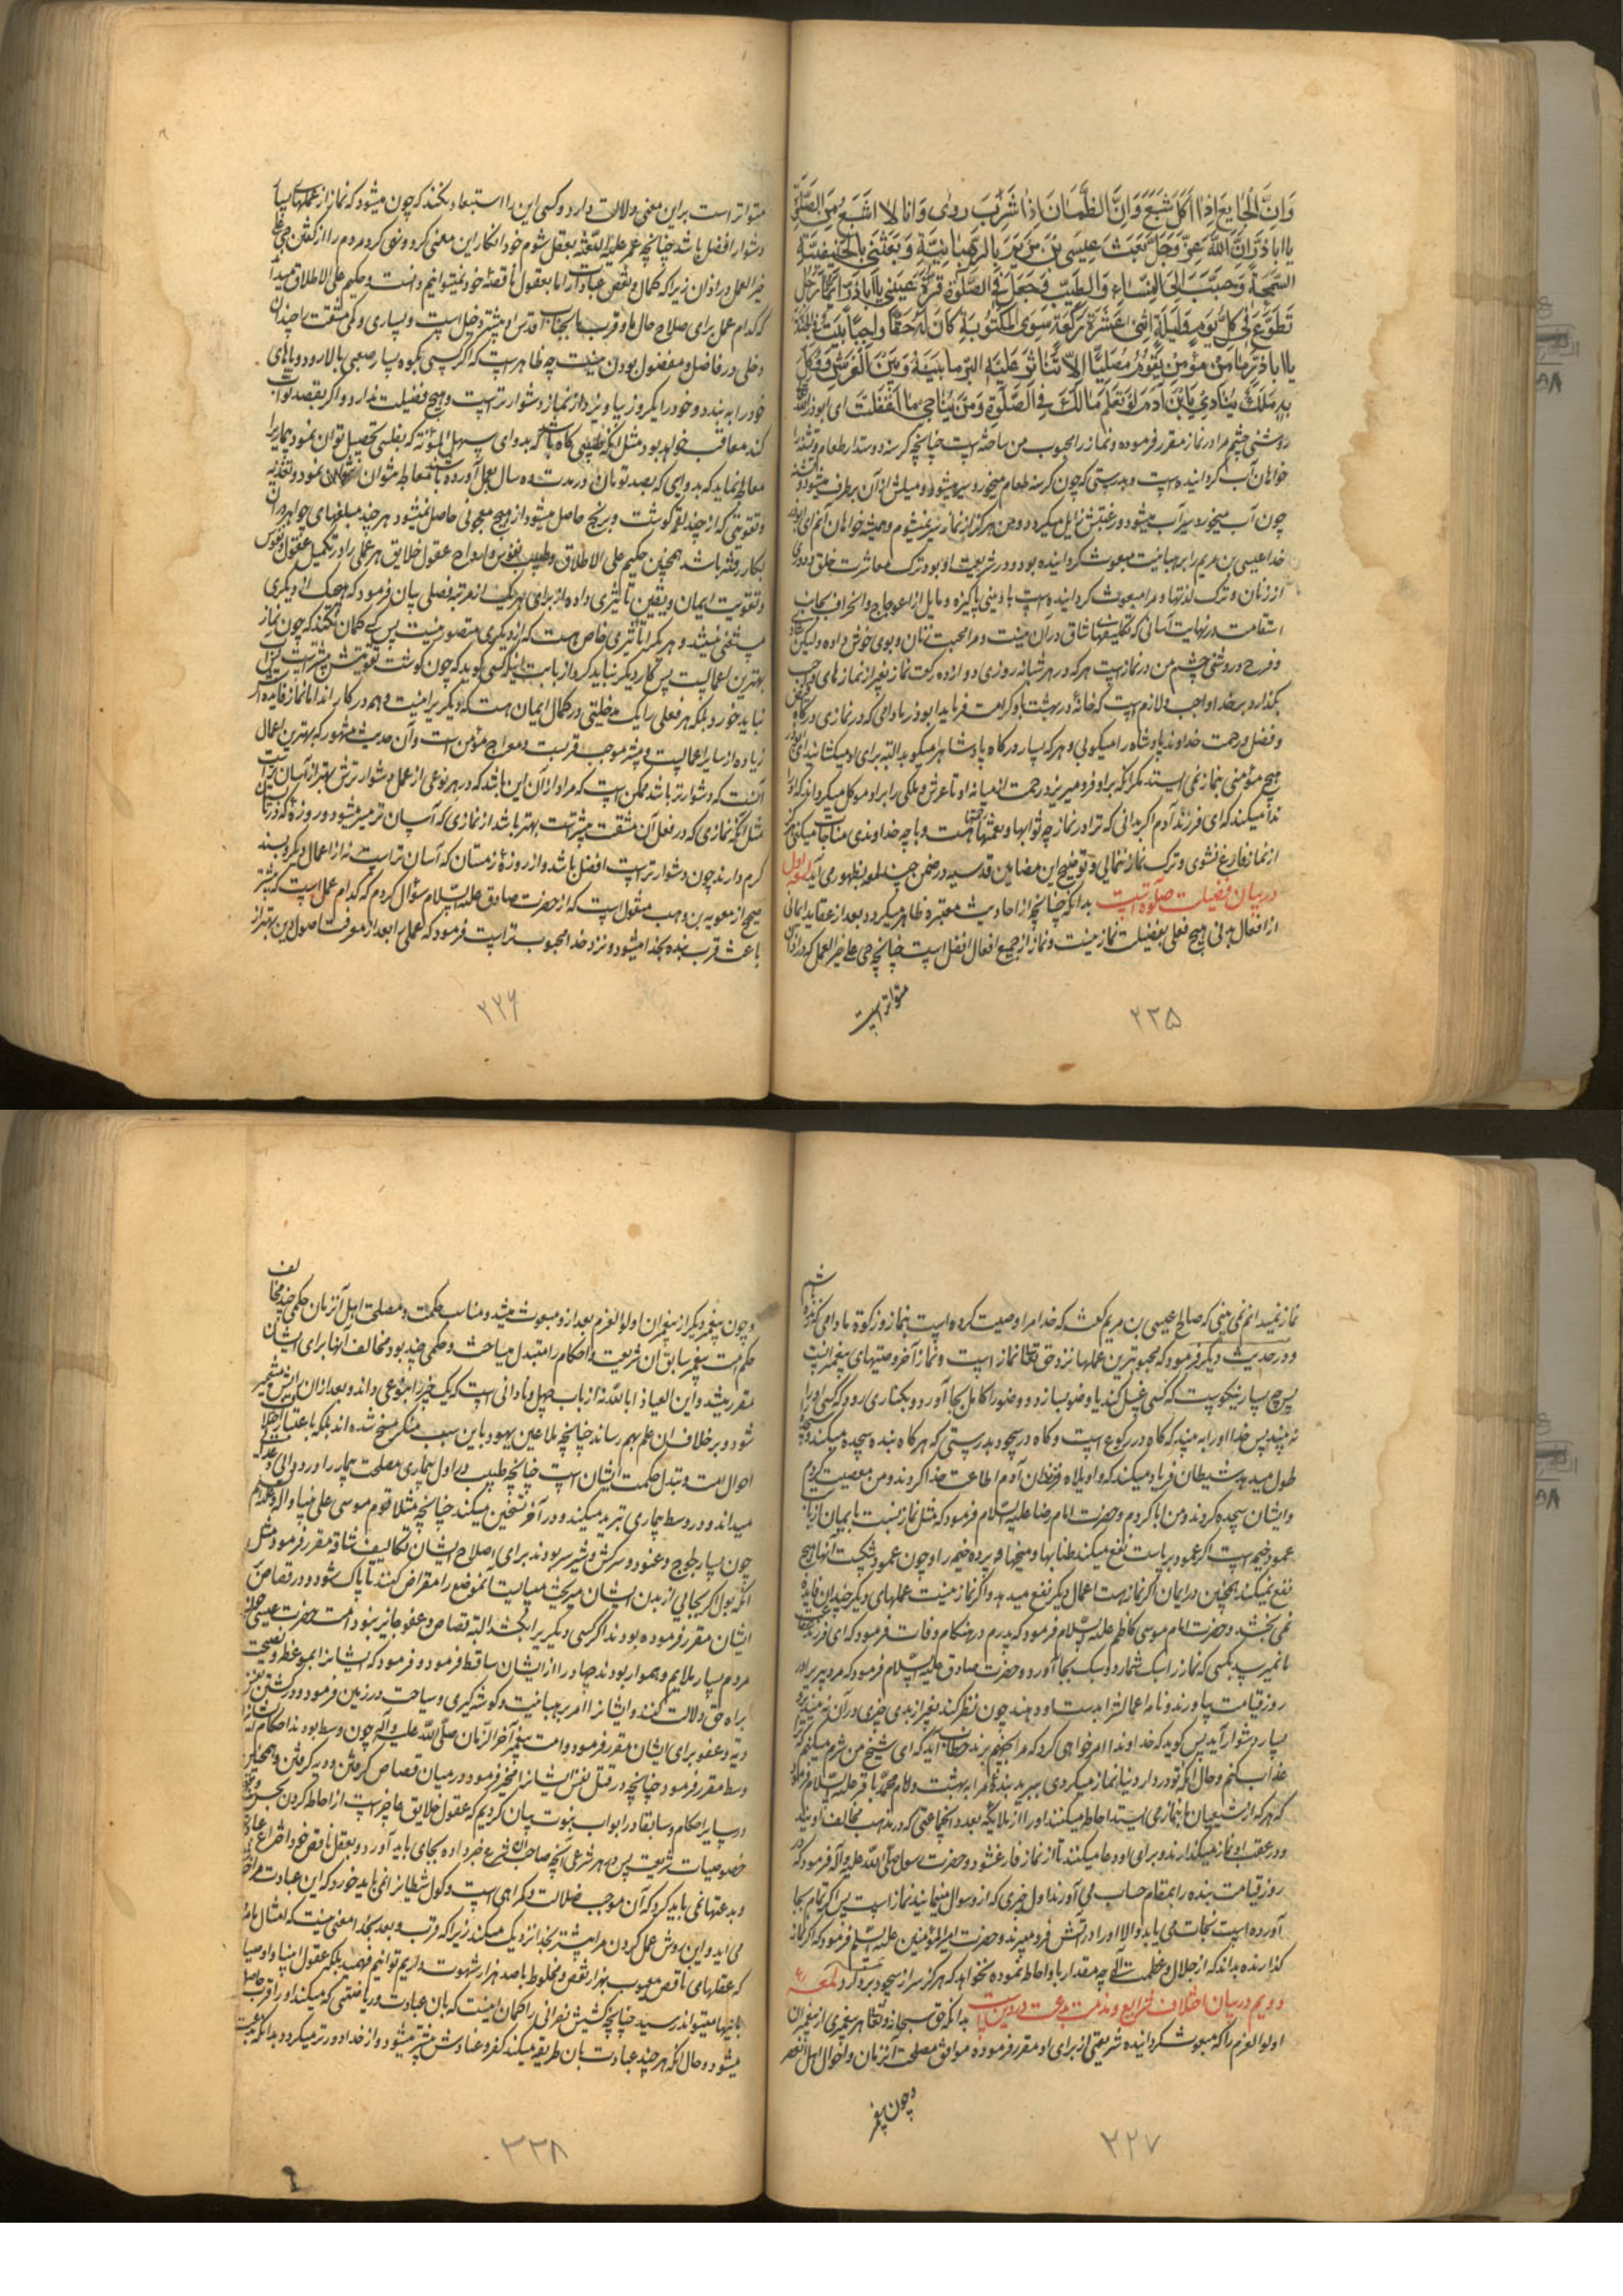 وَاِنَّ الْجَایِعَ اِذَا اَكَلَ شَبَعَ وَاِنَّ الظَّمْاٰنَ اِذَا شَرِبَ رَوٰى وَاَنَا لَا اَشْبَعُ مِنَ الصَّلٰوةِ
یا اباذرّ اِنَّ اللّٰهَ عَزَّ وَجَلَّ بَعَثَ عِيسَى بْنَ مَرْيَمَ بِالرَّهْبَانِيَّةِ وَبَعَثَنِي بِالْحَنِيفِيَّةِ
السَّمْحَةِ وَحَبَّبَ اِلَىَّ النِّسَاءَ وَالطِّيبَ وَجَعَلَ فِي الصَّلٰوةِ قُرَّةَ عَيْنِي يَا اَبَاذَرٍّ اَيُّمَا رَجُلٍ
تَطَوَّعَ فِي كُلِّ يَوْمٍ وَلَيْلَةٍ اِثْنَىْ عَشَرَةَ رَكْعَةً سِوَى الْمَكْتُوبَةِ كَانَ لَهُ حَقًّا وَاجِبًا بَيْتٌ فِي الْجَنَّةِ
يا اباذرّ مَا مِنْ مُؤْمِنٍ يَقُومُ مُصَلِّيًا اِلَّا تَنَاثَرَ عَلَيْهِ الْبِرُّ مَا بَيْنَهُ وَبَيْنَ الْعَرْشِ وَوُكِّلَ
بِهِ مَلَكٌ يُنَادِي يَا بْنَ آدَمَ لَوْ تَعْلَمُ مَا لَكَ فِي الصَّلٰوةِ وَمَنْ تُنَاجِي مَا انْفَتَلْتَ ای ابوذر
روشنی چشم مرا در نماز مقرر فرموده و نماز را محبوب من ساخته است چنانچه گرسنه دوستدار طعام و تشنه را
خواهان آب گردانیده است و بدرستی که چون گرسنه طعام میخورد سیر میشود و میلش از آن برطرف میشود و تشنه
چون آب میخورد سیر آب میشود و رغبتش زایل میگردد و من هرگز از نماز سیر نمیشوم و همیشه خواهان آنم ای ابوذر
خدا عیسی بن مریم را برهبانیت مبعوث گردانیده بود و در شریعت او بود ترک معاشرت خلق و دوری
از زنان و ترک لذتها و مرا مبعوث گردانیده است با دینی پاکیزه و مایل از اعوجاج و انحراف بجانب
استقامت در نهایت آسانی که تکلیفهای شاق در آن نیست و مرا محبت زنان و بوی خوش داده ولیکن شادی
و فرح و روشنی چشم من در نماز است هر که در هر شبانه روزی دوازده رکعت نماز بغیر از نمازهای واجب
بگذارد بر خدا واجب و لازم است که خانه در بهشت باو کرامت فرماید ابوذر مادامی که در نمازی در گاه فیض
و فضل و رحمت خداوند پادشاه را میکوبی و هر که بسیار درگاه پادشاه را میکوبد البته برای او میگشایند ای ابوذر
هیچ مؤمنی بنماز نمی ایستد مگر آنکه بر او فرو میریزد رحمت الهی میانه او تا عرش و ملکی را بر او موکل میگردانند که او را
ندا میکند که ای فرزند آدم اگر بدانی که ترا در نماز چه ثوابها و نعمتها هست و با چه خداوندی مناجات میکنی هرگز
از نماز فارغ نشوی و ترک نماز ننمایی و توضیح این مضامین قدسیه در ضمن چند لمعه بظهور می آید لمعه اول
در بیان فضیلت صلوة است بدانکه چنانچه از احادیث معتبره ظاهر میگردد بعد از عقاید ایمانی
از افعال بدنی هیچ فعلی بفضیلت نماز نیست و نماز از جمیع افعال افضل است چنانچه حی علی خیر العمل که در اذان
متواتر است
۲۲۵
متواتر است بر این معنی دلالت دارد و کسی این را استبعاد نکند که چون میشود که نماز از عملهای بسیار
دشوار افضل باشد چنانچه عمر علیه اللعنه بعقل شوم خود انکار این معنی کرد و نهی کرد مردم را از گفتن حی علی
خیر العمل در اذان زیرا که کمال و نقص عبادات را ما بعقول ناقصه خود نمیتوانیم دانست و حکیم علی الاطلاق میداند
که کدام عمل برای صلاح حال ما و قرب ما بجناب اقدس او بیشتر دخیل است و بسیاری و کمی مشقت را چندان
دخلی در فاضل و مفضول بودن نیست چه ظاهر است که اگر کسی بکوه بسیار صعبی بالا رود و پاهای
خود را به بندد و خود را بکروز بیاویزد از نماز دشوارتر است و هیچ فضیلت ندارد و اگر بقصد ثواب
کند معاقب خواهد بود مثل آنکه طبیبی گاه باشد که بدوای سهل المؤنه که بفلسی تحصیل توان نمود بیماریرا
معالجه نماید که بدوایی که بصد تومان در مدت ده سال بعمل آورده باشند معالجه نتوان نمود و تغذیه
و تقویتی که از چند لقمه گوشت و برنج حاصل میشود از هیچ معجونی حاصل نمیشود هر چند مبلغهای جواهر در آن
بکار رفته باشد همچنین حکیم علی الاطلاق و طبیب نفوس و ارواح عقول خلایق هر عملی را در تکمیل عقول و نفوس
و تقویت ایمان و یقین تأثیری داده و از برای هر یک از هر تبه فضلی بیان فرمود که هیچ یک از دیگری
مستغنی نیستند و هر یک را تأثیری خاص هست که از دیگری متصور نیست پس کسی گمان نکند که چون نماز
بهترین اعمالست پس کار دیگر نباید کرد از بابت اینکه کسی گوید که چون گوشت تقویتش بیشتر است پس آب
نباید خورد بلکه هر فعلی را یک مدخلیتی در کمال ایمان هست که دیگریرا نیست و همه در کارند اما نماز فایده اش
زیاده از سایر اعمال است و بیشتر موجب قربست و معراج مؤمن است و آن حدیث مشهور که بهترین اعمال
آنست که دشوارتر باشد ممکن است که مراد از آن این باشد که در هر نوعی از عمل دشوارترش بهتر از آسان تر است
مثل آنکه نمازی که در فعل آن مشقت بیشتر است بهتر باشد از نمازی که آسان تر میسر میشود و روزه که در تابستان
گرم دارند چون دشوارتر است افضل باشد و از روزه زمستان که آسان تر است نه از اعمال دیگر و بسند
صحیح از معویه بن وهب منقول است که از حضرت صادق علیه السلام سؤال کردم که کدام عمل است که بیشتر
باعث قرب بنده بخدا میشود و نزد خدا محبوب تر است فرمود که عملی را بعد از معرفت اصول دین بهتر از
۲۲۶
نماز نمیدانم نمی بینی که صالح اعیسی بن مریم گفت که خدا مرا وصیت کرده است بنماز و زکوة مادامی که زنده باشم
و در حدیث دیگر فرمود که محبوبترین عملها نزد حق تعالی نماز است و نماز آخر وصیتهای پیغمبرانست
پس چه بسیار نیکوست که کسی غسل کند یا وضو بسازد و وضو را کامل بجا آورد و بکناری رود که کسی او را
نه بیند پس خدا او را به بیند که گاه در رکوع است و گاه در سجود بدرستی که هر گاه بنده سجده میکند و سجده را
طول میدهد شیطان فریاد میکند که واویلاه فرزندان آدم اطاعت خدا کردند و من معصیت کردم
و ایشان سجده کردند و من ابا کردم و حضرت امام رضا علیه السلام فرمود که مثل نماز نسبت بایمان از بابت
عمود خیمه است اگر عمود برپاست نفع میکند طنابها و میخها و پرده خیمه را و چون عمود شکست آنها هیچ
نفع نمیکند همچنین در ایمان اگر نماز هست اعمال دیگر نفع میدهد و اگر نماز نیست عملهای دیگر چندان فایده
نمی بخشد و حضرت امام موسی کاظم علیه السلام فرمود که پدرم در هنگام وفات فرمود که ای فرزند شفاعت
ما نمیرسد بکسی که نماز را سبک شمارد و سبک بجا آورد و حضرت صادق علیه السلام فرمود که مرد پیریرا در
روز قیامت بیاورند و نامه اعمالش را بدستاو دهند چون نظر کند بغیر از بدی چیزی در آن نه بیند بر او
بسیار دشوار آید پس گوید که خداوندا امر خواهی کرد که مرا بجهنم برند خطاب آید که ای شیخ من شرم میکنم که ترا
عذاب کنم و حال آنکه تو در دار دنیا نماز میکردی ببرید بنده مرا به بهشت و امام محمد باقر علیه السلام فرمود
که هر که از شیعیان ما بنماز می ایستد احاطه میکنند او را از ملایکه بعدد آنجماعتی که در مذهب مخالف اویند
و در عقب او نماز میگذارند و برای او دعا میکنند تا از نماز فارغ شود و حضرت رسول صلی الله علیه وآله فرمود که در
روز قیامت بنده را بمقام حساب می آورند اول چیزی که از و سوال مینمایند نماز است پس اگر تمام بجا
آورده است نجات می یابد والا او را در آتش فرو میبرند و حضرت امیر المؤمنین علیه السلم فرمود که اگر نماز
گذارنده بداند که از جلال و عظمت الهی چه مقدار باو احاطه نموده نخواهد که هرگز سر از سجود بردارد لمعه
دویم در بیان اختلاف شرایع و مذمت بدعت در دین است بدانکه حق سبحانه و تعالی هر پیغمبری از پیغمبران
اولوالعزم را که مبعوث گردانیده شریعتی از برای او مقرر فرموده موافق مصلحت آنزمان و احوال اهل آن عصر
و چون پیغمبر
۲۲۷
و چون پیغمبر دیگر از پیغمبران اولوالعزم بعد از و مبعوث میشد و مناسب حکمت و مصلحت اهل آنزمان حکمی چند مخالف
حکم امت پیغمبر سابق آن شریعت و احکام را متبدل میساخت و حکمی چند بود مخالف آنها برای ایشان
مقرر میشد و این العیاذ بالله نه از باب جهل و نادانی است که یک چیز را بنوعی داند و بعد از آن رایش متغیر
شود و بر خلاف آن علم بهم رساند چنانچه ملاعین یهود باین سبب منکر نسخ شده اند بلکه باعتبار اختلاف
احوال امت و تبدل حکمت ایشان است چنانچه طبیب در اول بیماری مصلحت بیمار را در دوائی
میداند و در وسط بیماری تبرید میکند و در آخر تسخین میکند چنانچه مثلا قوم موسی علی نبینا وآله وعلیه السلم
چون بسیار لجوج و عنود و سرکش و شریر بودند برای اصلاح ایشان تکالیف شاقه مقرر فرمود مثل
آنکه بول اگر بجایی از بدن ایشان میریخت میبایست آنموضع را مقراض کنند تا پاک شود و در قصاص
ایشان مقرر فرموده بودند اگر کسی دیگریرا بکشد البته قصاص و عفو جایز نبود امت حضرت عیسی چون
مردم بسیار ملایم و هموار بودند جهاد را از ایشان ساقط فرمود و فرمود که ایشانرا بموعظه و نصیحت
براه حق دلالت کنند و ایشانرا امر برهبانیت و گوشه گیری و سیاحت در زمین فرمود و در کشتن نیز
دیه و عفو برای ایشان مقرر فرمود و امت پیغمبر آخر الزمان صلی الله علیه وآله چون وسط بودند احکام ایشانرا
وسط مقرر فرمود چنانچه در قتل نفس ایشانرا مخیر فرمود در میان قصاص گرفتن و دیه گرفتن و همچنین
در سایر احکام و سابقا در ابواب نبوت بیان کردیم که عقول خلایق عاجز است از احاطه کردن بحسن و قبح
خصوصیات شریعت پس در هر شرعی آنچه صاحب آن شرع خبر داده بجای باید آورد و بعقل ناقص خود اختراع عبادتی
و بدعتها نمی باید کرد که آن موجب ضلالت و گمراهی است و گول شیطانرا نمی باید خورد که این عبادت مرا خوش
می آید و این روش عمل کردن مرا بیشتر بخدا نزدیک میکند زیرا که قرب و بعد بخدا معنی نیست که امثال ما
که عقلهای ناقص معیوب بهزار نقص و مخلوط با صد هزار شهوت داریم توانیم فهمید بلکه عقول انبیا و اوصیا
بانها میتواند رسید چنانچه کشیش نصرانی را گمان اینست که بان عبادت و ریاضتی که میکند او را قرب حاصل
میشود و حال آنکه هر چند عبادت بان طریقه میکند کفر و عنادش بیشتر میشود و از خدا دورتر میگردد بدانکه بدعت
۲۲۸